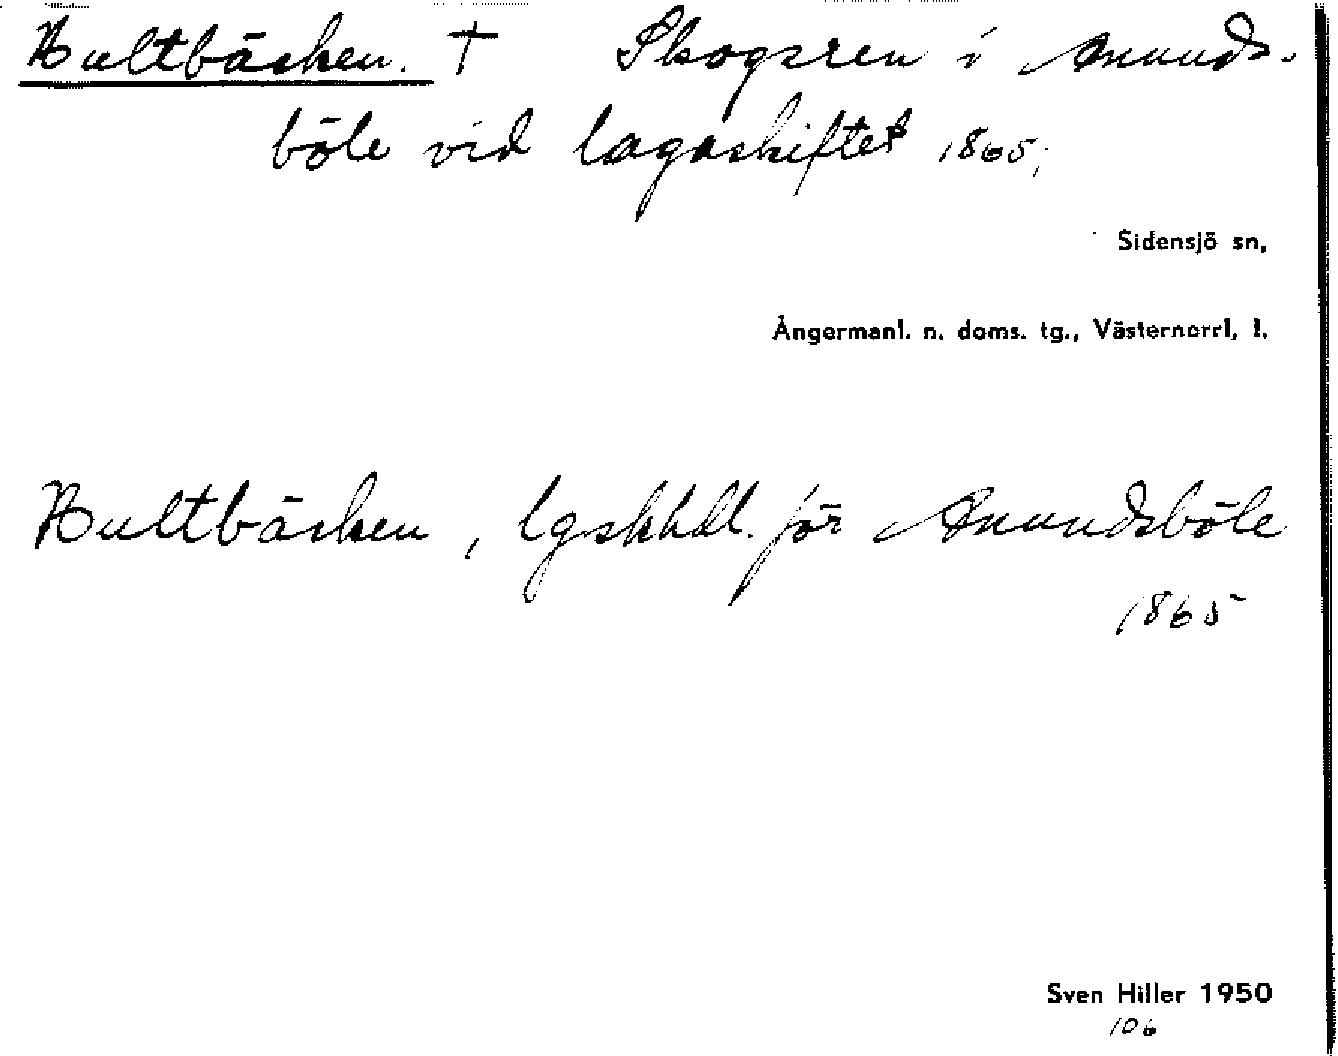 Hultbäcken. † Skogsren i Anunds-
böle vid lagaskiftet 1865;
Sidensjö sn,
Ångermanl. n. doms. tg., Västernorrl. l.
Hultbäcken, lgskhdl. för Anundsböle
1865
Sven Hiller 1950
106